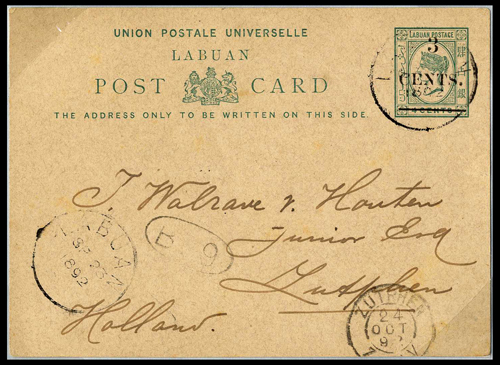 UNION POSTALE UNIVERSELLE
LABUAN
POST CARD
THE ADDRESS ONLY TO BE WRITTEN ON THIS SIDE.
LABUAN POSTAGE
3
CENTS.
4 CENTS
J. Walrave v. Houten
Junior Esq
Zutphen
Holland.
LABUAN
SP 23
1892
B 9
ZUTPHEN
24
OCT
92